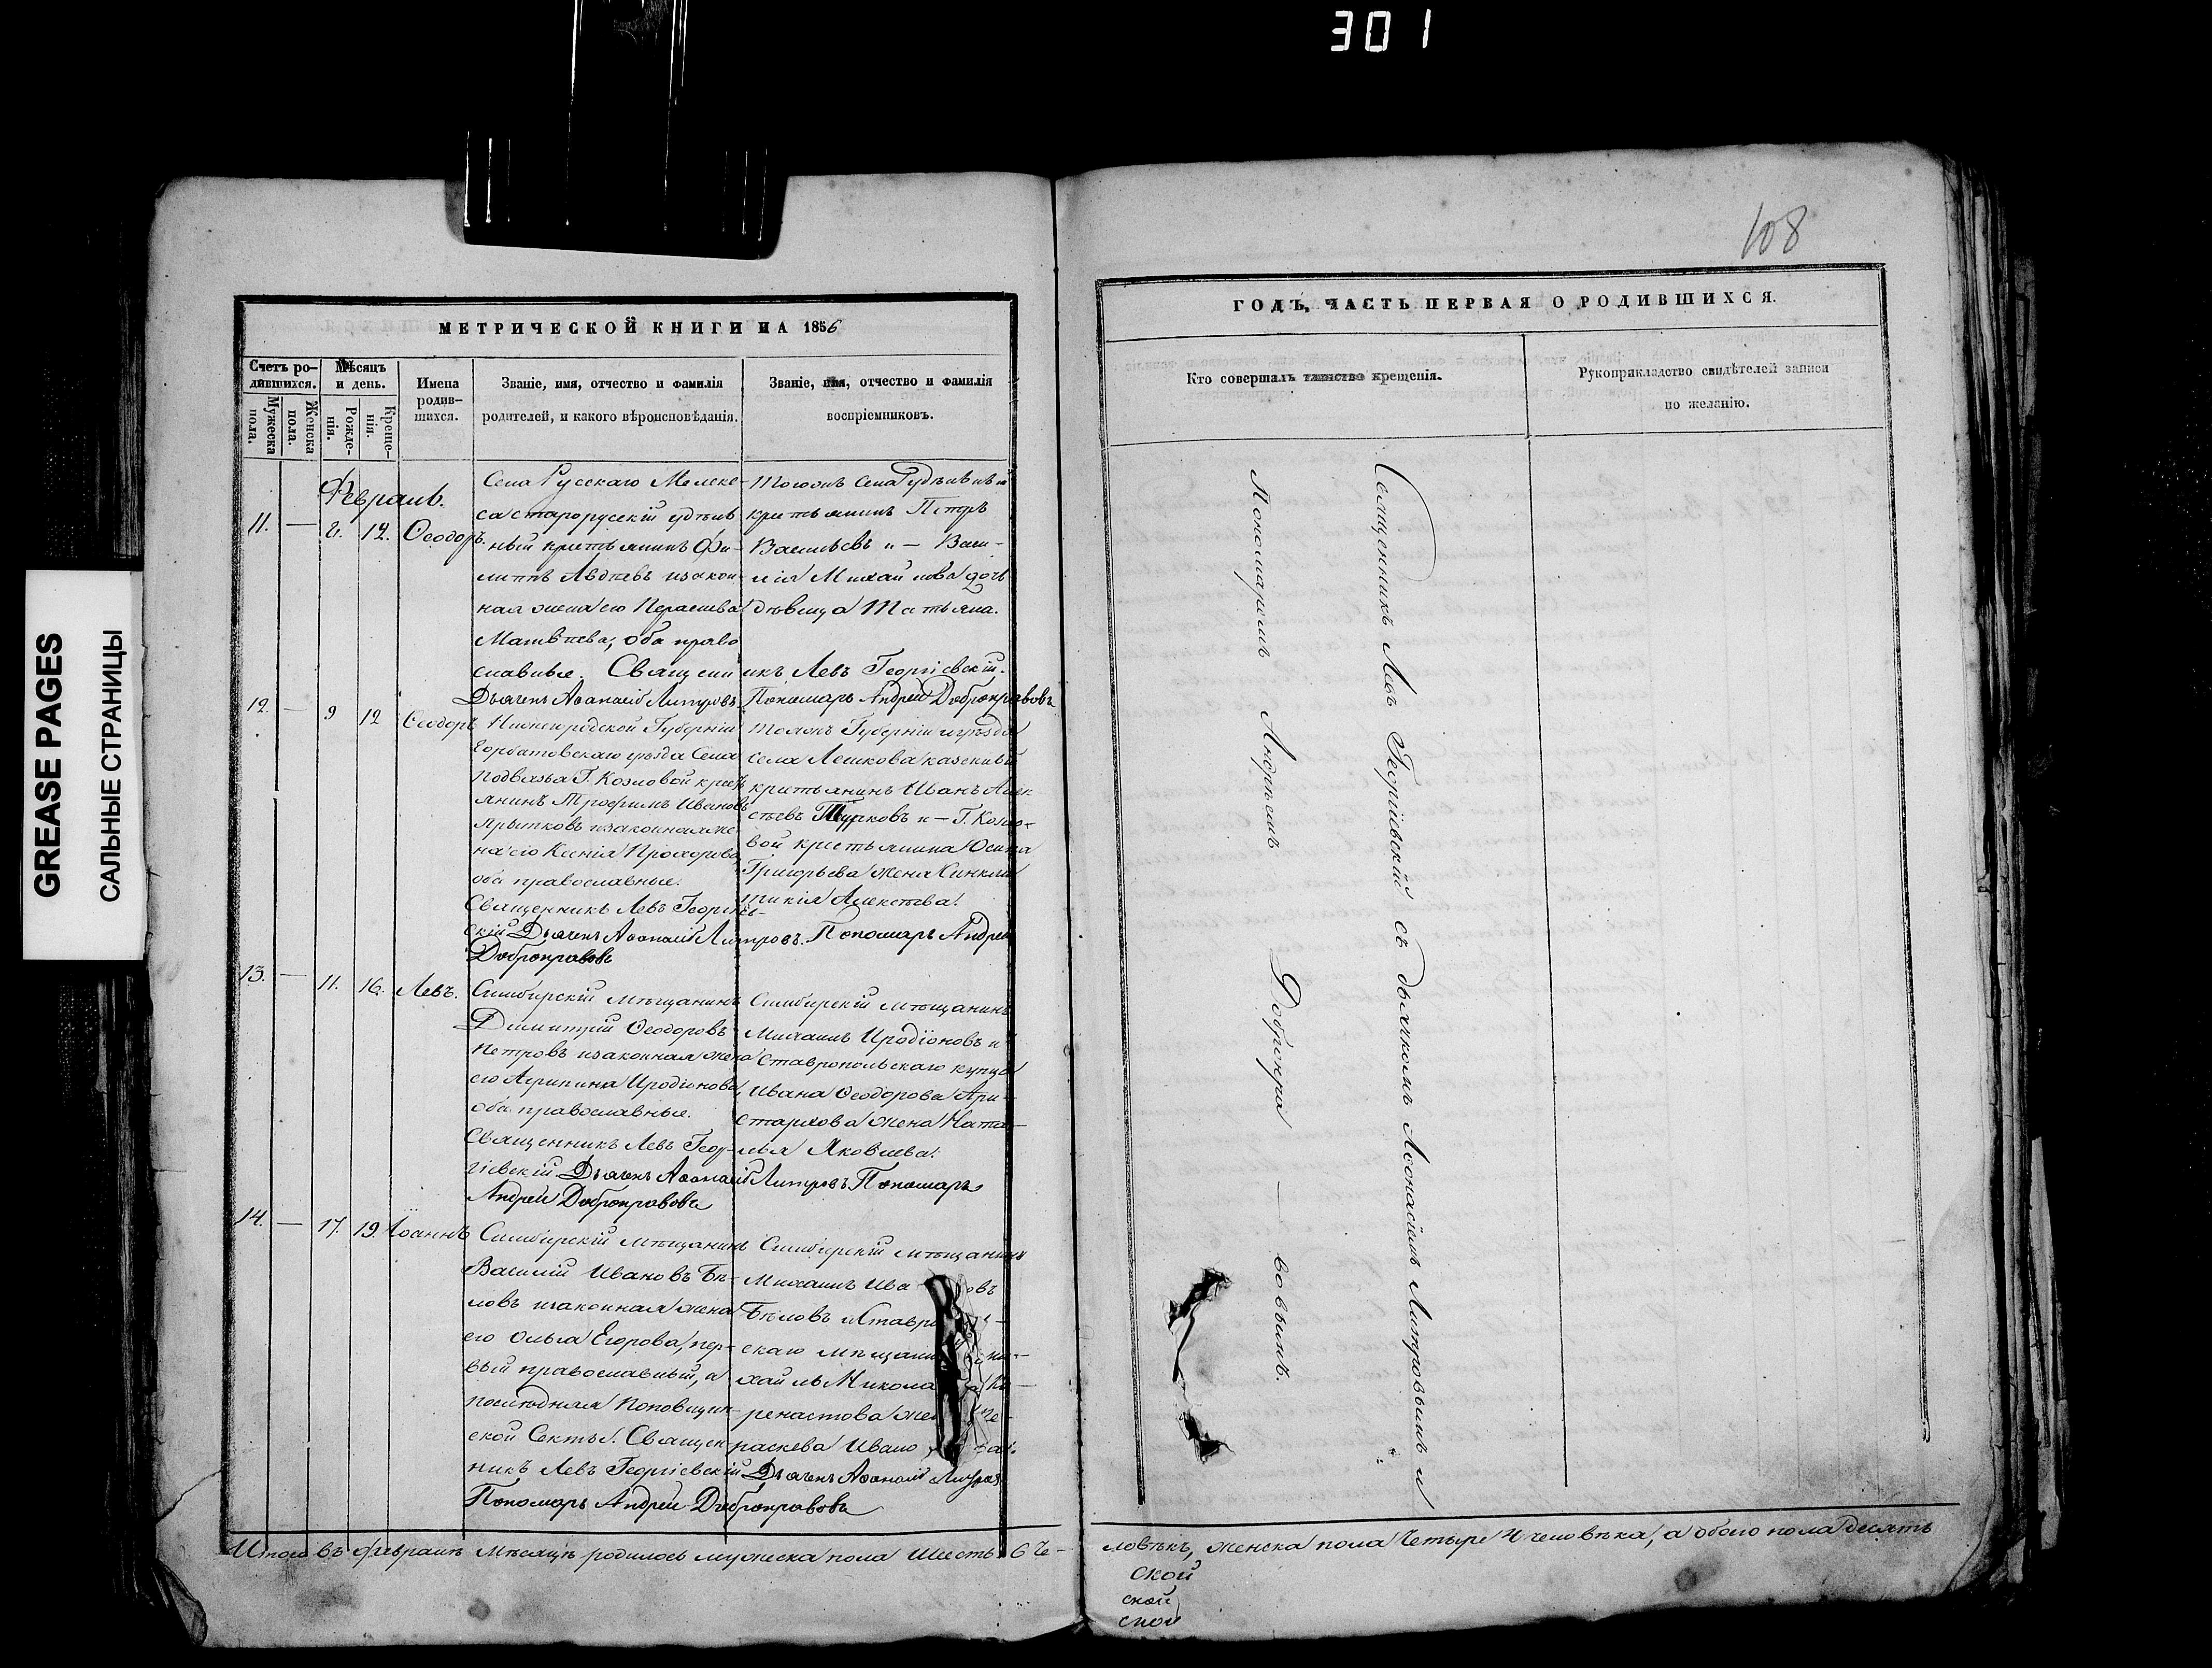 301
GREASE PAGES
САЛЬНЫЕ СТРАНИЦЫ
МЕТРИЧЕСКОЙ КНИГИ НА 1856
Счетъ ро-
дившихся.
Мужеска
пола.
Женска
пола.
Мѣсяцъ
и день.
Рожде-
нія.
Креще-
нія.
Имена
родив-
шихся.
Званіе, имя, отчество и фамилія
родителей, и какого вѣроисповѣданія.
Званіе, имя, отчество и фамилія
воспріемниковъ.
Февраль.
11. — 12. Ѳеодоръ.
Села Русскаго Мелеке-
са старорусскій удѣль
ный крестьянинъ Фи-
липпъ Авдѣевъ и закон
ная жена его Параскева
Матвѣева, оба право
славные. Священникъ Левъ Георгіевскій.
Дьячекъ Аѳанасій Листровъ Пономарь Андрей Добронравовъ
Тогожъ Села Удѣльный
крестьянинъ Петръ
Васильевъ и — Васи-
лія Михайлова дочь
дѣвица Татьяна.
12. — 9 12 Ѳеодоръ
Нижегородской Губерніи
Горбатовскаго уѣзда Села
Подвязья Г. Козловой крест
янинъ Трофимъ Ивановъ
и законная же
на его Ксенія Прохорова
оба православные.
Священникъ Левъ Георгіев-
скій Дьячекъ Аѳанасій Листровъ. Пономарь Андрей
Добронравовъ
Тоежъ Губерніи и уѣзда
села Лешкова казенный
крестьянинъ Иванъ Алек
сѣевъ и — Г. Козло-
вой крестьянина Осипа
Григорьева жена Синкли
тикія Алексѣева.
13. — 11. 16. Левъ.
Симбирскій мѣщанинъ
Димитрій Ѳеодоровъ
Петровъ и законная жена
его Агрипина Иродіонова,
оба православные.
Священникъ Левъ Геор-
гіевскій Дьячекъ Аѳанасій Листровъ Пономарь
Андрей Добронравовъ
Симбирскій мѣщанинъ
Михаилъ Иродіоновъ и
Ставропольскаго купца
Ивана Ѳеодорова Ари-
стархова жена Ната-
лья Яковлева.
14. — 17. 19. Іоаннъ
Симбирскій мѣщанинъ
Василій Ивановъ Бѣ-
ловъ и законная жена
его Ольга Егорова, пер-
вый православный, а
послѣдняя Поповщин-
ской Секты. Священ
никъ Левъ Георгіевскій Дьячекъ Аѳанасій Листровъ
Пономарь Андрей Добронравовъ
Симбирскій мѣщанинъ
Михаилъ Ива овъ
Бѣловъ и Ставро
скаго мѣщани
Никола
жен
раскева Ивано
Итого въ Февралѣ Мѣсяцѣ родилось мужеска пола Шесть 6 че-
108
ГОДЪ, ЧАСТЬ ПЕРВАЯ О РОДИВШИХСЯ.
Кто совершалъ таинство крещенія.
Рукоприкладство свидѣтелей записи
по желанію.
Священникъ Левъ Георгіевскій съ дьячкомъ Аѳонасіемъ Листровымъ и
Пономаремъ Андреемъ Добронра — вовымъ.
ловѣкъ, женска пола Четыре 4 человѣка, а обоего пола десять
ской
ской
ской